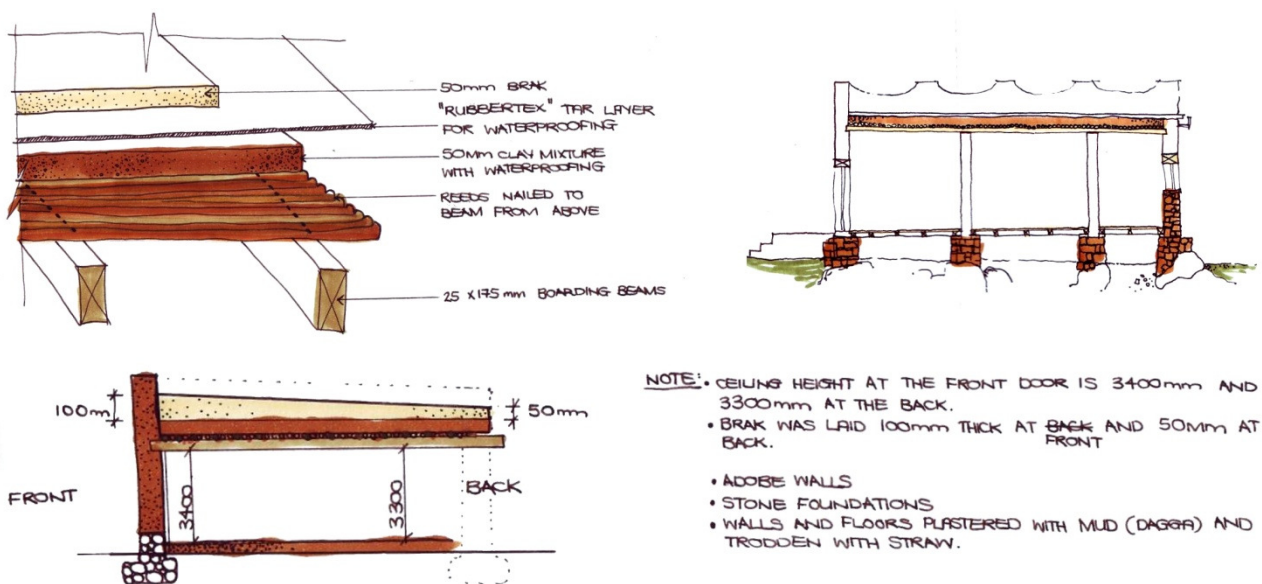 50mm BRAK
"RUBBERTEX" TAR LAYER
FOR WATERPROOFING
50MM CLAY MIXTURE
WITH WATERPROOFING
REEDS NAILED TO
BEAM FROM ABOVE
25 X175 mm BOARDING BEAMS
100m
50mm
FRONT
3400
3300
BACK
NOTE: • CEILING HEIGHT AT THE FRONT DOOR IS 3400mm AND
3300mm AT THE BACK.
• BRAK WAS LAID 100mm THICK AT BACK AND 50MM AT
FRONT
BACK.
• ADOBE WALLS
• STONE FOUNDATIONS
• WALLS AND FLOORS PLASTERED WITH MUD (DAGGA) AND
TRODDEN WITH STRAW.